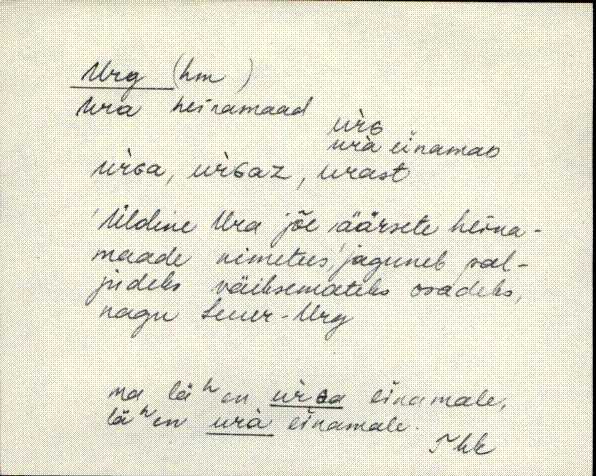 Urg (hm )
Ura heinamaad
ùrɢ
urà einamaD
ùrGa, ùrGaz, urast
Üldine Ura jõe äärsete heina-
maade nimetus, jaguneb pal-
judeks väiksemateks osadeks,
nagu Suur-Urg
ma läʰen ùrGa einamale,
läʰen urà einamale.